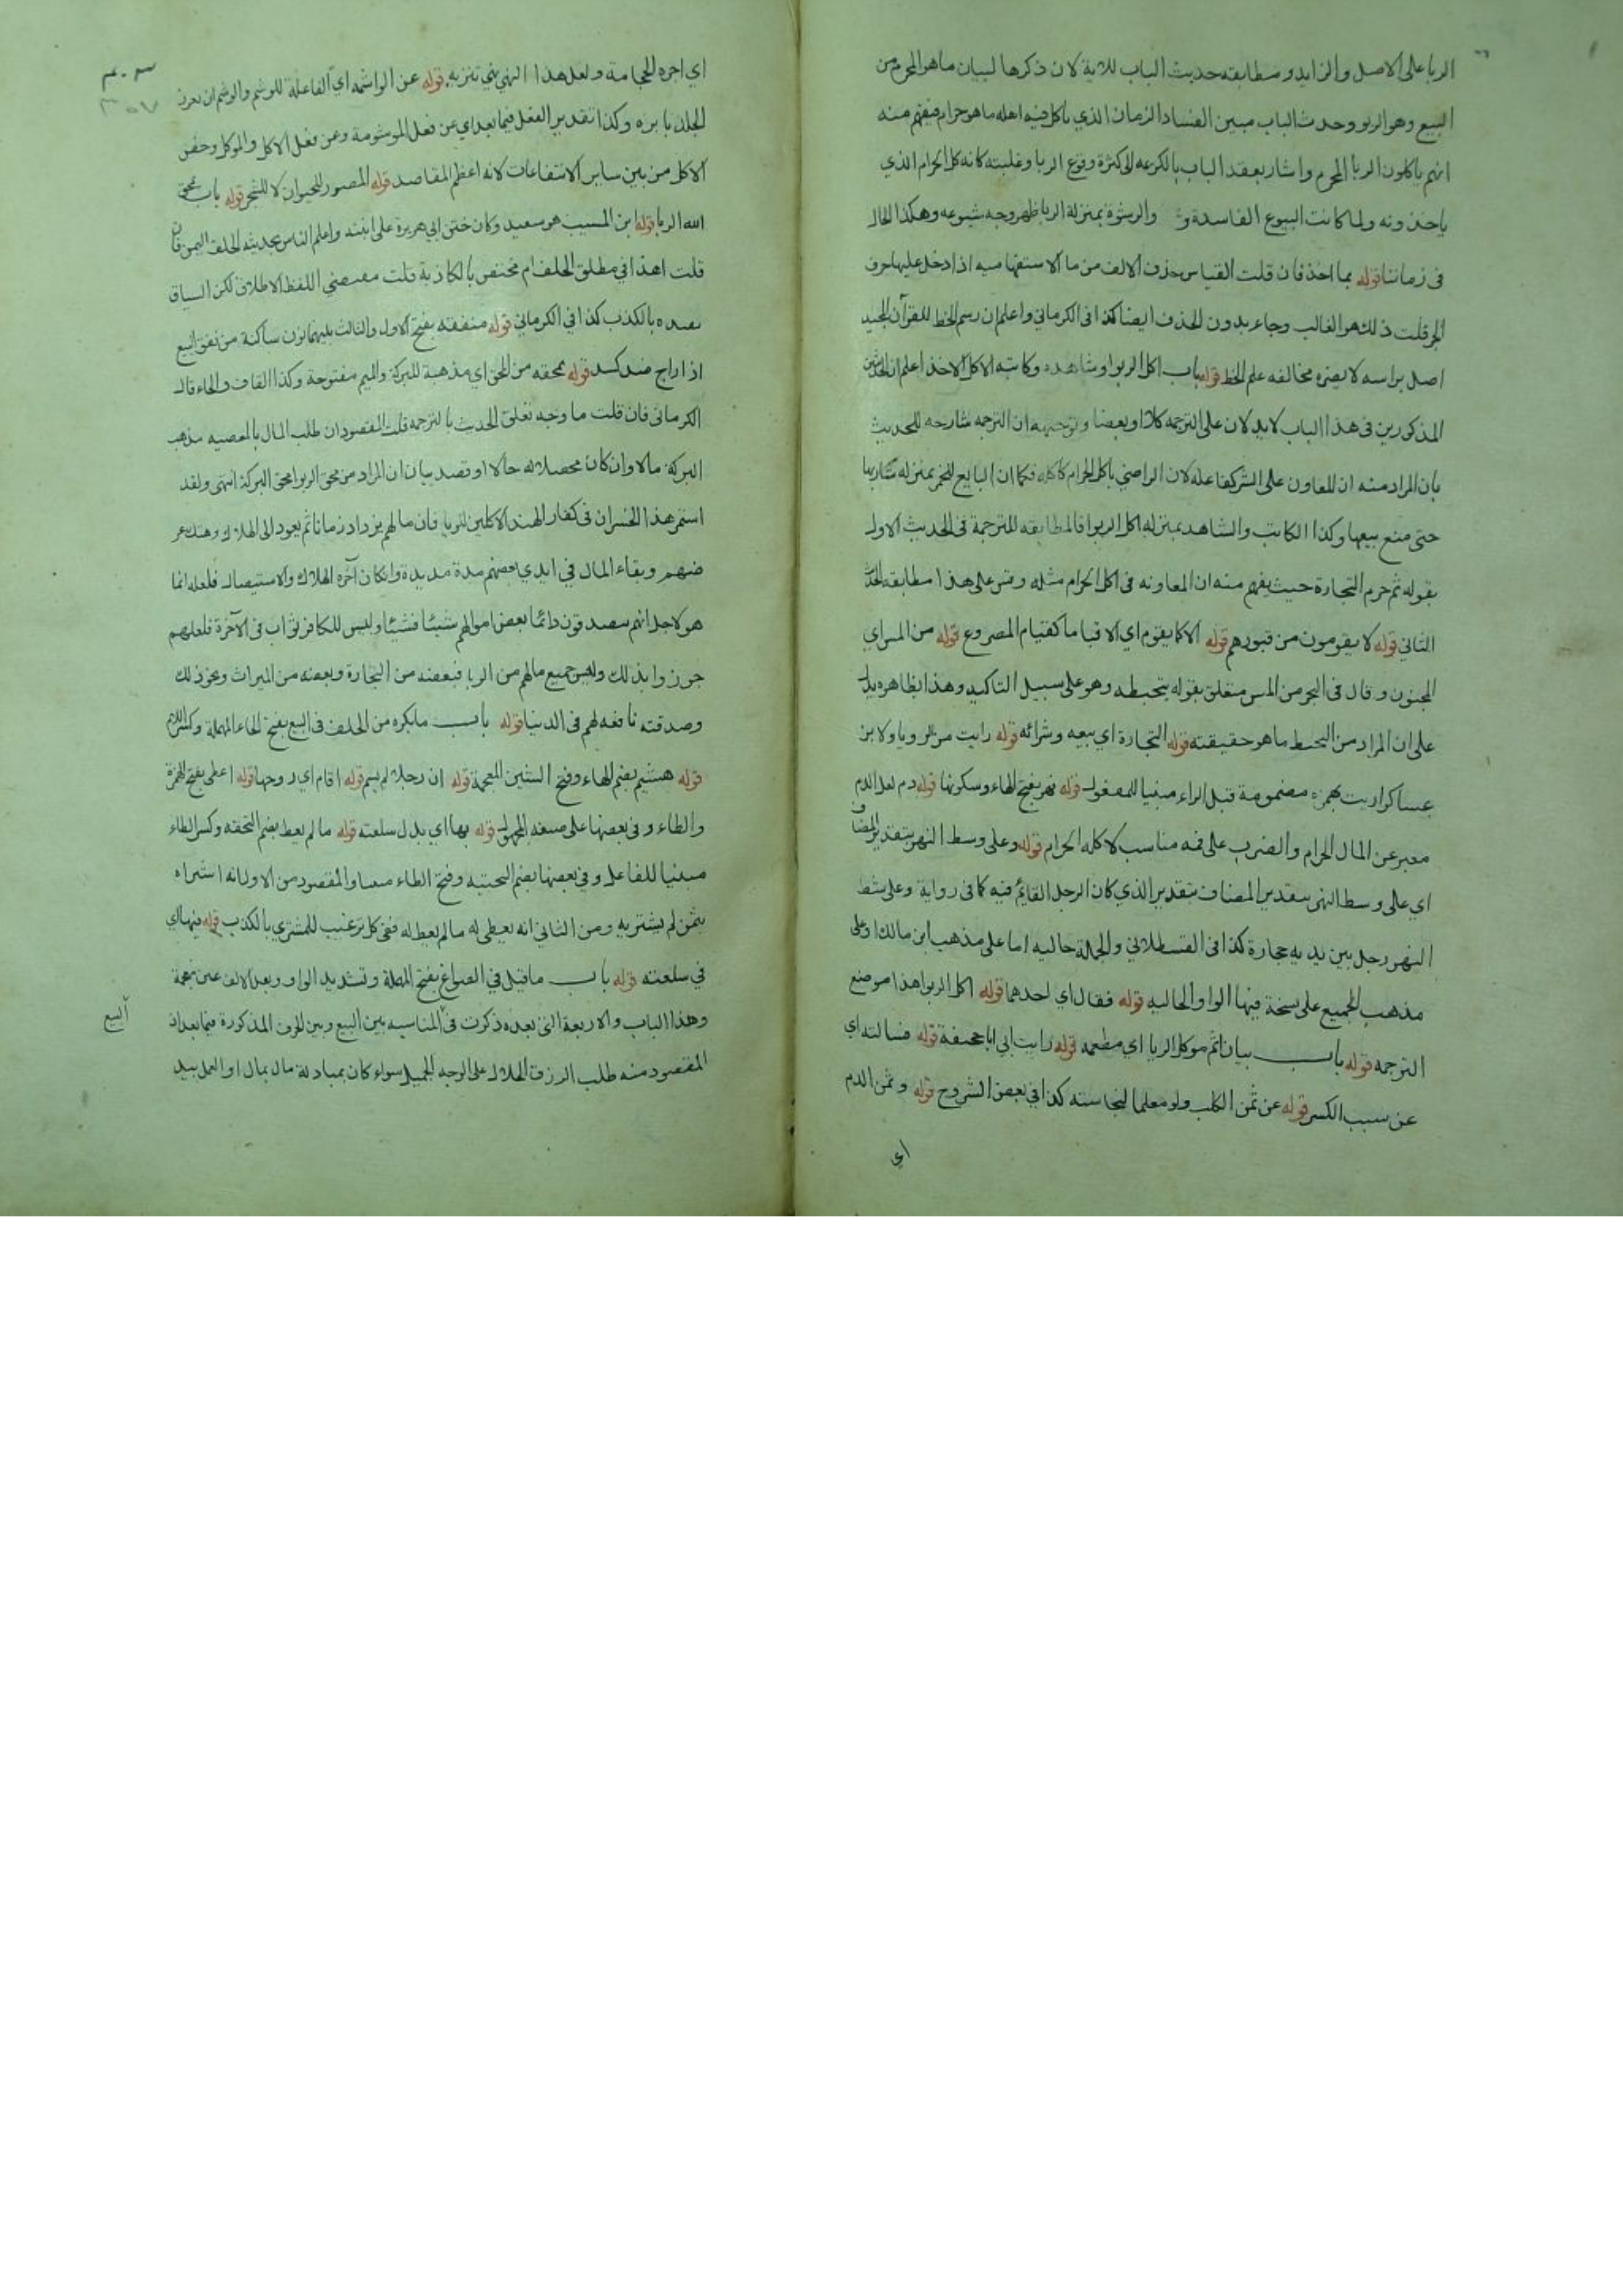 الربا على الاصل والزايد ومطابقه حديث الباب للاية لان ذكرها لبيان ماهو المحرم من
البيع وهو الربو وحديث الباب مبين الفساد الزمان الذي ياكل فيه اهله ما هو حرام فيفهم منه
انهم ياكلون الربا المحرم واشار بعقد الباب بالكريمه الى كثرة وقوع الربا وغلبته كانه كل الحرام الذي
ياخذونه ولما كانت البيوع الفاسدة و والرشوة بمنزلة الربا ظهر وجه شيوعه وهكذا الحال
فى زماننا قوله بما اخذ فان قلت القياس حذف الالف من ما الاستفهاميه اذا دخل عليها حرف
الجر قلت ذلك هو الغالب وجاء بدون الحذف ايضا كذا فى الكرماني واعلم ان رسم الخط للقرآن المجيد
اصل براسه لا يضره مخالفه علم الخط قوله باب اكل الربوا وشاهده وكاتبه الاكل الاخذ اعلم ان الحديثين
المذكورين فى هذا الباب لا يدلان على الترجمه كلا او بعضا وتوجيهه ان الترجمه شارحه للحديث
بان المراد منه ان المعاون على الشر كفاعله لان الراضي باكل الحرام كآكله فكما ان البايع للخمر بمنزله شاربها
حتى منع بيعها وكذا الكاتب والشاهد بمنزله اكل الربوا فالمطابقه للترجمة فى الحديث الاول
بقوله ثم حرم التجارة حيث يفهم منه ان المعاونه فى اكل الحرام مثله وقس على هذا مطابقه الحديث
الثاني قوله لا يقومون من قبورهم قوله الا كما يقوم اي الا قياما كقيام المصروع قوله من المس اي
الجنون وقال فى البحر من المس متعلق بقوله يتخبطه وهو على سبيل التاكيد وهذا بظاهره يدل
على ان المراد من التخبط ما هو حقيقته قوله التجارة اي بيعه وشرائه قوله رايت من الرويا ولابن
عساكر اريت بهمزه مضمومة قبل الراء مبنيا للمفعول قوله نهر بفتح الهاء وسكونها قوله دم لعل الدم
معبر عن المال الحرام والضرب على فمه مناسب لاكله الحرام قوله وعلى وسط النهر بتقدير المضاف
اي على وسط النهر بتقدير المضاف بتقدير الذي كان الرجل القائم فيه كما فى رواية وعلى شط
النهر رجل بين يديه حجارة كذا فى القسطلاني والجملة حاليه اما على مذهب ابن مالك او على
مذهب الجميع على نسخة فيها الواو الحاليه قوله فقال اي احدهما قوله اكل الربوا هذا موضع
الترجمه قوله باب بيان اثم موكل الربا اي مطعمه قوله رايت ابي ابا جحيفة قوله فسالته اي
عن سبب الكسر قوله عن ثمن الكلب ولو معلما لنجاسته كذا في بعض الشروح قوله وثمن الدم
اي
اي اجره الحجامة ولعل هذا النهي نهي تنزيه قوله عن الواشمه اي الفاعلة للوشم والوشم ان يغرز
الجلد بابره وكذا تقدير الفعل فيما بعد اي عن فعل الموشومة وعن فعل الاكل والموكل وخص
الاكل من بين ساير الانتفاعات لانه اعظم المقاصد قوله المصور للحيوان لا للشجر قوله باب يمحق
الله الربا قوله ابن المسيب هو سعيد وكان ختن ابي هريرة على ابنته واعلم الناس بحديثه الحلف اليمن فان
قلت اهذا في مطلق الحلف ام مختص بالكاذبة قلت مقتضي اللفظ الاطلاق لكن السياق
يقيده بالكذب كذا في الكرماني قوله منفقه بفتح الاول والثالث بينهما نون ساكنة من نفق البيع
اذا راج ضد كسد قوله ممحقه من المحق اي مذهبة للبركة والميم مفتوحة وكذا القاف والحاء قال
الكرمانى فان قلت ما وجه تعلق الحديث بالترجمه قلت المقصود ان طلب المال بالمعصيه مذهب
البركه مالا وان كان محصلا له حالا او قصد بيان ان المراد من محق الربوا محق البركة انتهى ولقد
استمر هذا الخسران فى كفار الهند الاكلين الربا فان مالهم يزداد زمانا ثم يعود الى الهلاك وهتك عر
ضهم وبقاء المال في ايدي بعضهم مدة مديدة وان كان آخره الهلاك والاستيصال فلعله انما
هو لاجل انهم يصدقون دائما بعض اموالهم شيئا فشيئا وليس للكافر ثواب فى الآخرة فلعلهم
جوزوا بذلك وليس جميع مالهم من الربا فبعضه من التجارة وبعضه من الميراث ونحو ذلك
وصدقته نافعه لهم فى الدنيا قوله باب ما يكره من الحلف فى البيع بفتح الحاء المهملة وكسر اللام
قوله هشيم بضم الهاء وفتح الشين المعجمة قوله ان رجلا لم يسم قوله اقام اي روجها قوله اعطى بفتح الهمزة
والطاء وفى بعضها على صيغه المجهول قوله بها اي بدل سلعته قوله ما لم يعط بضم التحتيه وكسر الطاء
مبنيا للفاعل وفي بعضها بضم التحتيه وفتح الطاء والمقصود من الاول انه اشتراه
بثمن لم يشتر به ومن الثاني انه يعطى له ما لم يعط له ففى كل ترغيب للمشتري بالكذب قوله فيها اي
في سلعته قوله باب ما قيل في الصواغ بفتح المهملة وتشديد الواو وبعد الالف غين معجمة
وهذا الباب والاربعة التى بعده ذكرت فى البيع المناسبه بين البيع وبين الحرف المذكورة فيما بعد اذ
المقصود منه طلب الرزق الحلال على الوجه الجميل سواء كان بمبادلة مال بمال او العمل بيد